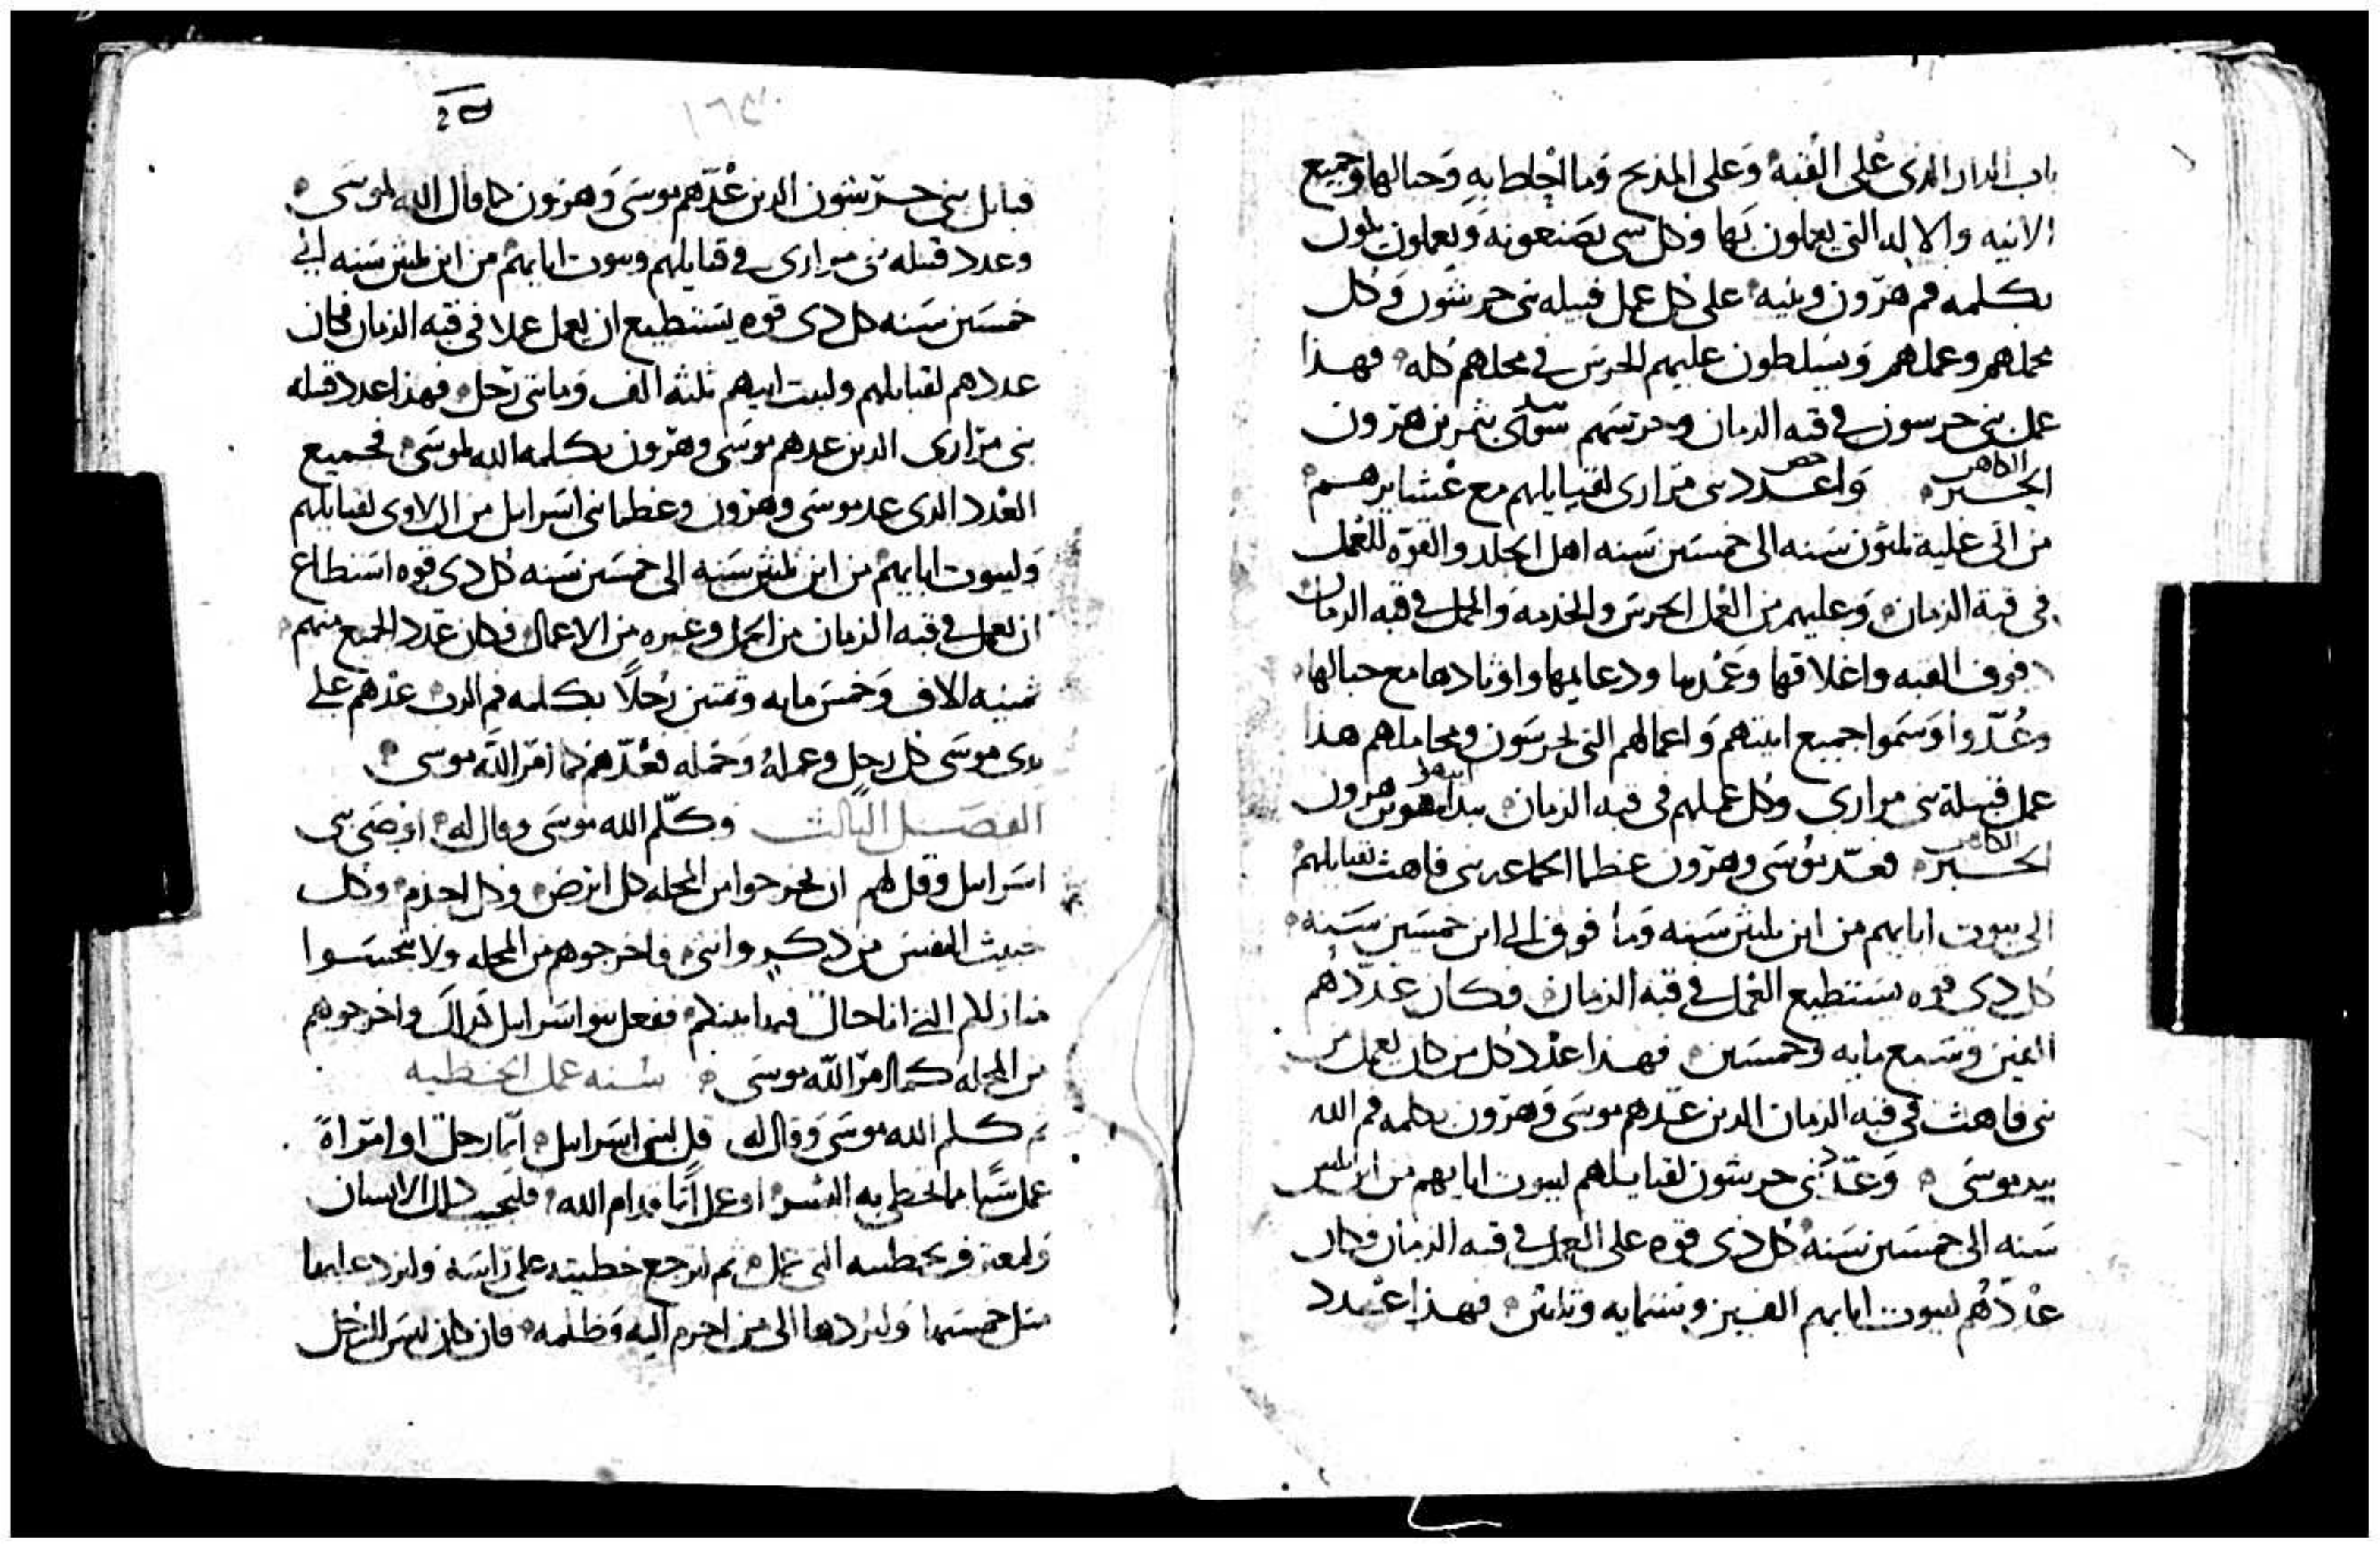 باب الدار الذى على القبه وَعلى المذبح وَما احاط بهِ وَحبالها وجميع
الانيه والاله التى يعملون بَها وكل شى يصَنعونهَ وَيعملون يكون
بكلمه فم هرّون وبنيه على كُل عمل قبيله بنى جرشون وَكل
محملهم وعملهم وَيسَلطون عليهم الحرسَ فى محلهم كله فهذا
عمل بنى جرسون فى قبه الزمان وحرسَهم بيد ثمر بن هرّون
الكاهن
الحَبر وَاعدد بنى مرارى لقبايلهم مع عشايرهم
من اتى عليه ثلثون سَنه الى خمسَين سَنه اهل الجلد والقوّه للعمل
فى قبة الزمان وَعليهم من العمل الحرسَ والخدمه والحمل فى قبه الزمان
فوف القبه واغلاقها وَعُمدها ودعايمها واوتادها مع حبالها
وعُدّوا وَسَموا جميع انيتهم وَاعمالهم التى يحرسَون ومحاملهم هذا
عمل قبيلة بنى مرارى وكل عملهم فى قبه الزمان بيد بن هرون
الكاهن
الحبر فعدّ موُسَى وهرّون وعظما الجماعه بنى قاهث لقبايلهمْ
الى بيوت ابايهم من ابن ثلثين سَنه وَما فوق الى ابن خمسَين سَنه
كل ذى قوه يسَتطيع العمل فى قبه الزمان فكان عددهُم
الفين وسَبع مايه وخمسَين فهذا عدد كل من كان يعمل من
بنى قاهث فى قبه الزمان الدين عدهم موسَى وَهرّون بكلمه فم الله
بيد موسَى وَعدّ بنى جرشون لقبايلهم لبيوت ابايهم من ابن ثلثين
سَنه الى خمسَين سَنهْ كُل ذى قوه على العمل فى قبه الزمان فكان
عدَدهُم لبيوت ابايهم الفين وستمايه وثلثين فهذا عدد
قبايل بنى جرشون الدين عدّهم موسَى وَهرون كما قال الله لموسَى
وعدد قبيله بنى مرارى فى قبايلهم وبيوت ابايهمْ من ابن ثلثين سَنه الى
خمسَين سَنه كل ذى قوه يسَتطيع ان يعمل عملا فى قبه الزمان فكان
عددهم لقبايلهم ولبيت ابيهم ثلثه الف وَماتى رَجل فهذا عدد قبيله
بنى مرّارى الدين عدهم موسَى وهرّون بكلمه الله لموسَى فجميع
العدد الدى عد موسَى وهرون وعظما بنى اسَرايل من اللاوى لقبايلهم
وَلبيوت ابايهمْ من ابن ثلثين سَنه الى خمسَين سَنه كُل ذى قوه اسَتطاع
ان يعمل فى قبه الزمان من الحمل وغيره من الاعمال فكان عَدد الجميع منهم
ثمنيه الاف وَخمسَ مايه وثمنين رُجلاً بكلمه فم الرب عدهم على
يدى موسَى كُل رجل وعملهُ وَحَمله فعُدّهم كما امَر الله موسى
الفصَل الثالث وكلّم الله موسَى وقال له اوصَى بنى
اسَرايل وقل لهم ان يخرجوا من المحله كل ابرَص وكل اجذم وكل
خبيث النفسَ من ذكر وانثى فاخرجوهم من المحله ولا تنجسَوا
منازلكم التى انا حال فيما بينكم ففعل بنو اسَرايل كذلك واخرجوهم
من المحله كما امرّ الله موسَى سُنه عمل الخطيه
ثم كلم الله موسَى وَقال له قل لبنى اسَرايل ايّما رجل او امرَاة
عمل شَيا مما يخطى به البشر او عمل اثما قدام الله فليجب ذلك الانسان
وليعترف بخطيته التى عمل ثم ليرجع خطيته على رَاسَهَ وليرد عليها
مثل خمسَها وَليَرُدها الى من اجرم اليه وَظلمه فان كان ليسَ للرَجل